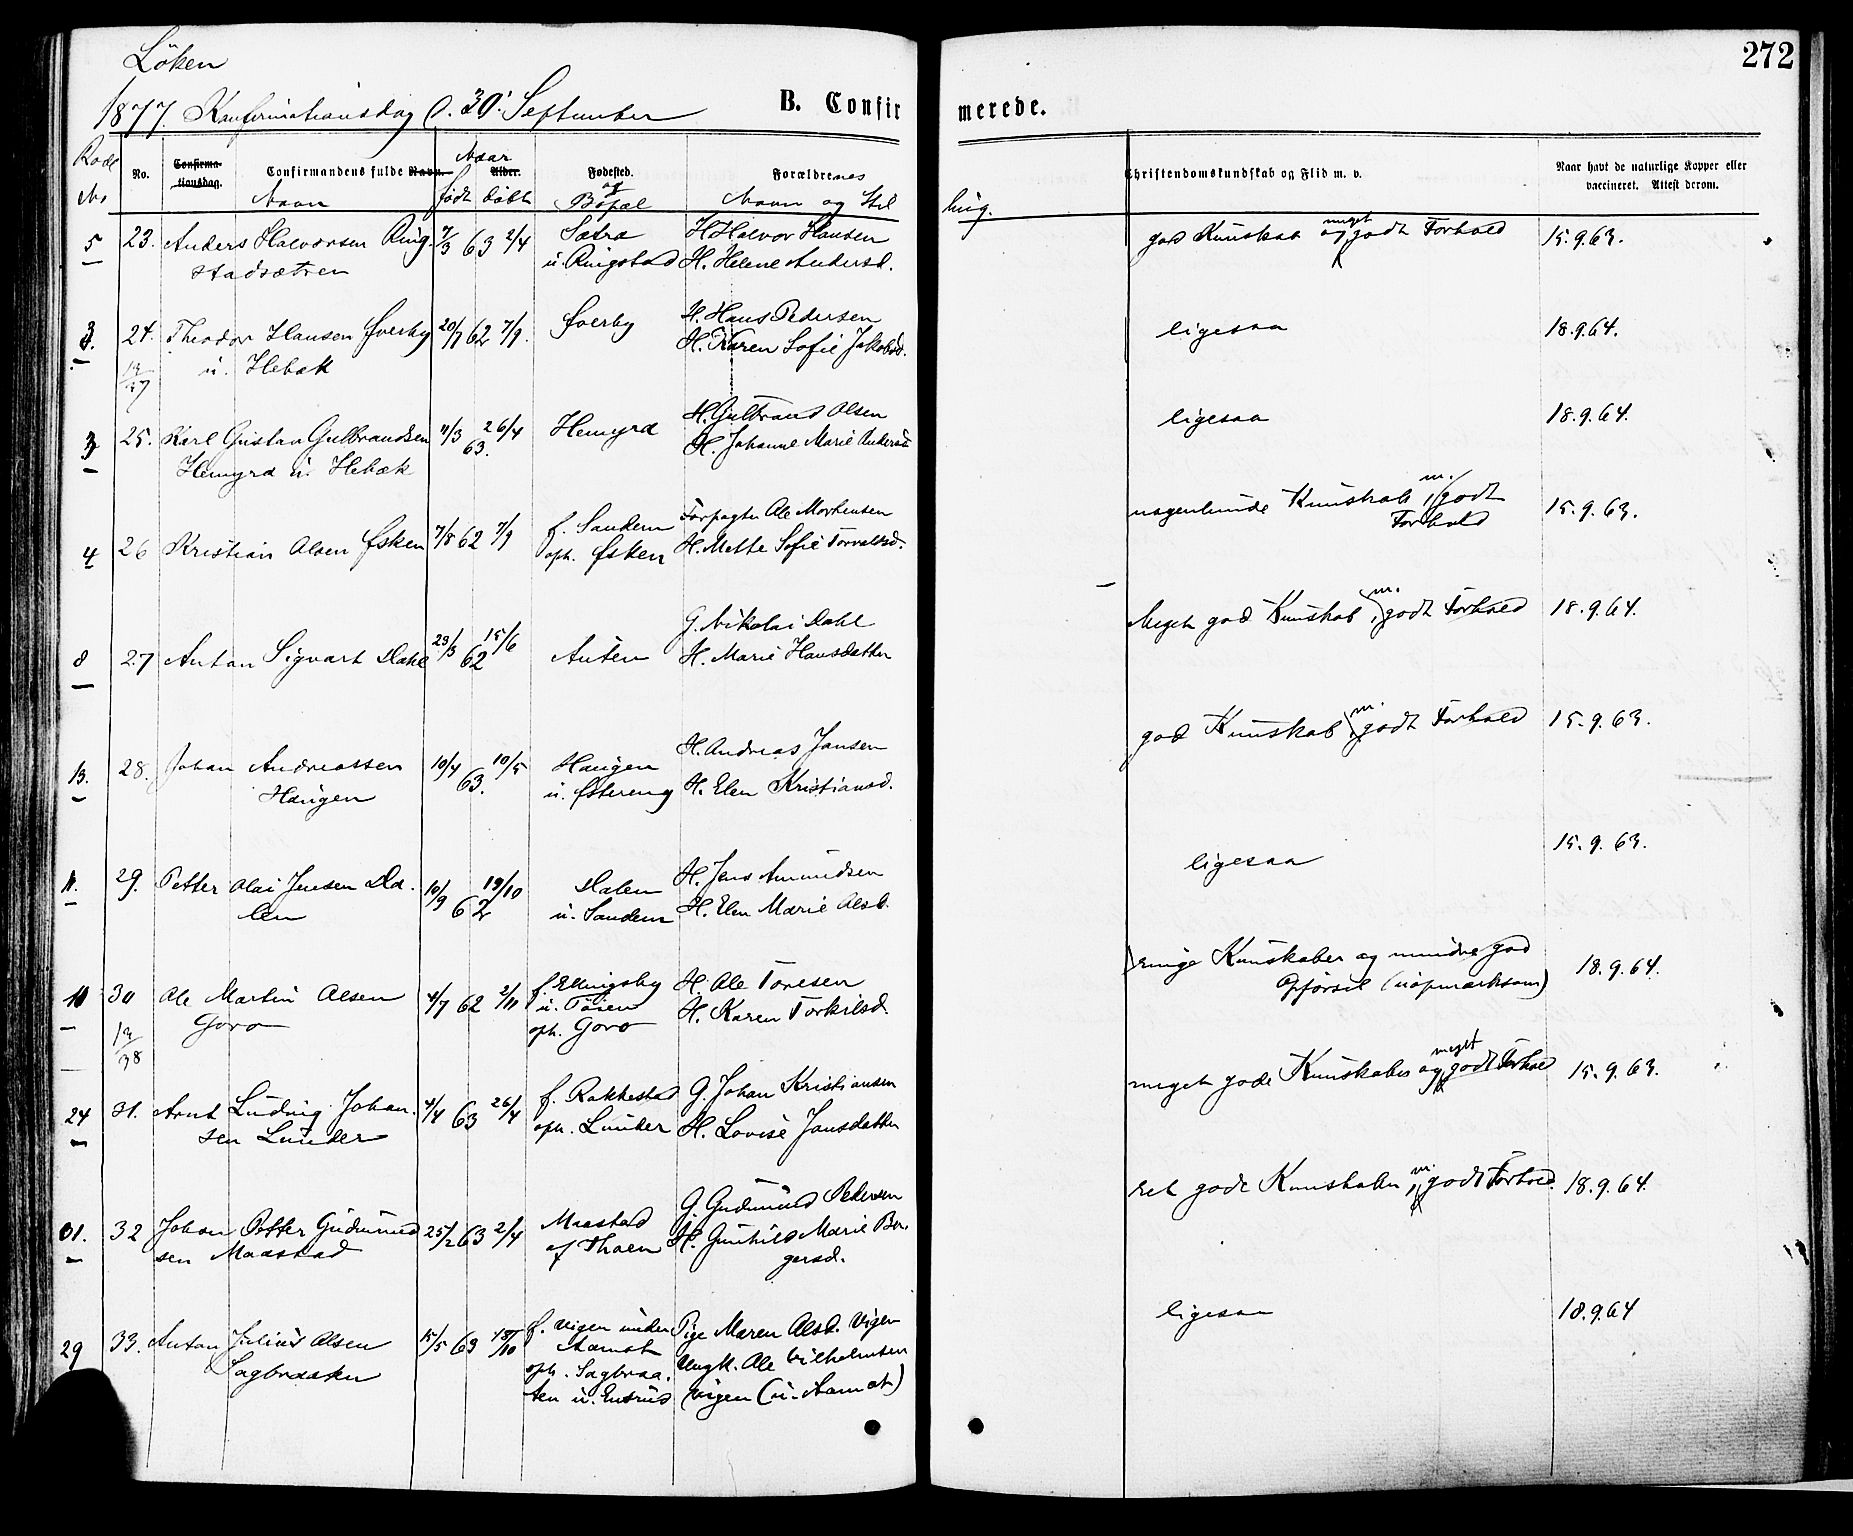 Löken
272
1877. Konfirmationsdag d. 30. September
B. Confir merede.
Kode No
No.
Confirma-
tionsdag.
Confirmandens fulde Navn.
Navn
Naar
Alder.
født döbt
Fødested.
og
Bopæl
Forældrenes
Navn og Stil
Christendomskundskab og Flid m. v.
Naar havt de naturlige Kopper eller
vaccineret. Attest derom.
5 23. Anders Halvorsen Ring- 7/3 63 2/4 Sætra H Halvor Hansen god Kunskab og meget godt Forhold 15.9.63.
stadsætren u. Ringstad H. Helene Andersd.
3. 24. Theodor Hansen Øverby 20/7 62 7/9. Øverby H. Hans Pedersen ligesaa 18.9.64.
u. Hebæk H. Karen Sofie Jakobsd.
3 25. Karl Gustav Gulbrandsen 11/3 63. 26/4 Hemyra H. Gulbrand Olsen ligesaa 18.9.64.
Hemyra u. Hebæk H. Johanne Marie Andersd
4 26 Kristian Olsen Øsken 7/8 62 7/9 f. Sandem Forpagter Ole Mortensen nogenlunde Kunskab, m. godt Forhold 15.9.63.
oph. Øsken H. Mette Sofie Torvaldsd.
8 27 Anton Sigvart Dahl 23/3 62 15/6 Auten G. Nikolai Dahl Meget god Kunskab, m. godt Forhold 18.9.64.
H. Marie Hansdatter
13. 28. Johan Andreassen 10/4 63. 10/5 Haugen H. Andreas Jansen god Kunskab, m. godt Forhold 15.9.63.
Haugen u. Østereng H. Elen Kristiansd.
11. 29. Petter Olai Jensen Da- 10/9 62 19/10 Dalen H. Jens Amundsen ligesaa 15.9.63.
len u. Sandem H. Elen Marie Olsd.
10 30 Ole Martin Olsen 4/7 62 2/11 f. Ellingsby H. Ole Toresen ringe Kunskaber og mindre god 18.9.64.
Goro u. Töien Opførsel (uopmærksom)
oph. Goro H. Karen Torkilsd.
24 31. Arnt Ludvig Johan- 4/4 63 26/4 f. Rakkestad G. Johan Kristiansen meget gode Kunskaber og meget godt Forhold 15.9.63.
sen Lunder oph. Lunder H. Lovise Jansdatter
31. 32 Johan Petter Gudmund 25/2 63 2/4 Maastad G. Gudmund Pedersen ret gode Kunskaber, m. godt Forhold. 18.9.64.
sen Maastad af Thoen H. Gunhild Marie Bor-
gersd.
29 33. Anton Julius Olsen 15/5 63 18/10 f. Vigen under Pige Maren Olsd. Vigen ligesaa 18.9.64
Sagbraaten Aamot Ungk. Ole Vilhelmsen
oph. Sagbraa- Vigen (u. Aamot)
ten u. Entrud